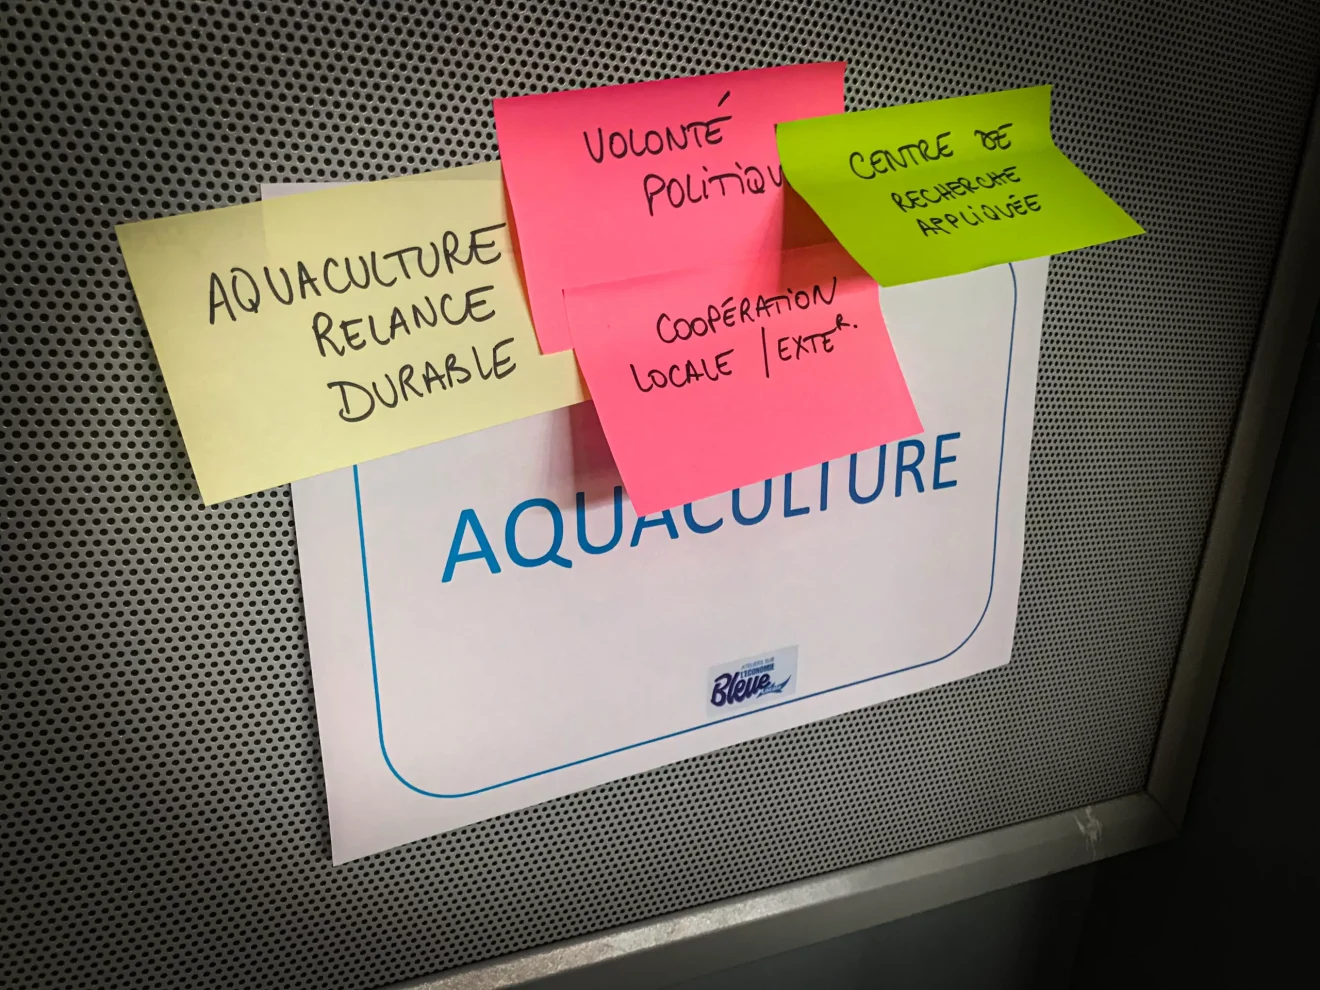 AQUACULTURE
RELANCE
DURABLE
VOLONTÉ
POLITIQU
CENTRE DE
RECHERCHE
APPLIQUÉE
COOPÉRATION
LOCALE / EXTER.
AQUACULTURE
ATELIERS SUR
L'ÉCONOMIE
Bleue